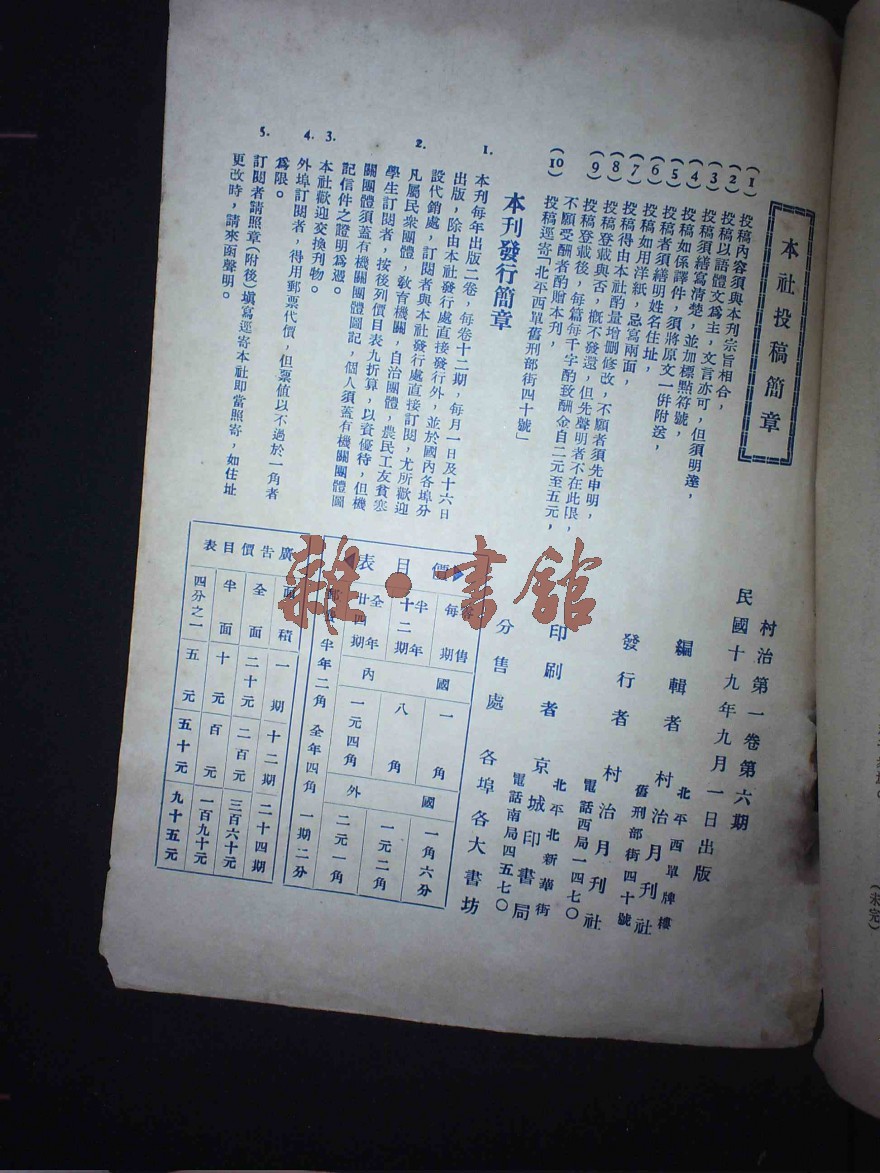 本社投稿簡章
(1) 投稿內容須與本刊宗旨相合，
(2) 投稿以語體文爲主，文言亦可，但須明達，
(3) 投稿須繕寫清楚，並加標點符號，
(4) 投稿如係譯件，須將原文一併附送，
(5) 投稿者須繕明姓名住址，
(6) 投稿如用洋紙，忌寫兩面，
(7) 投稿得由本社酌量增删修改，不願者須先申明，
(8) 投稿登載與否，槪不發還，但先聲明者不在此限，
(9) 投稿登載後，每篇每千字酌致酬金自二元至五元，
不願受酬者酌贈本刊，
(10) 投稿逕寄「北平西單舊刑部街四十號」
本刊發行簡章
1. 本刊每年出版二卷，每卷十二期，每月一日及十六日
出版，除由本社發行處直接發行外，並於國內各埠分
設代銷處，訂閱者與本社發行處直接訂閱，尤所歡迎
2. 凡屬民衆團體，敎育機關，自治團體，農民工友貧寒
學生訂閱者，按後列價目表九折算，以資優待，但機
關團體須蓋有機關團體圖記，個人須蓋有機關團體圖
記信件之證明爲憑。
3. 本社歡迎交換刊物。
4. 外埠訂閱者，得用郵票代價，但票値以不過於一角者
爲限。
5. 訂閱者請照章(附後)塡寫逕寄本社卽當照寄，如住址
更改時，請來函聲明。
村治第一卷第六期
民國十九年九月一日出版
編輯者 村治月刊社
北平西單牌樓
舊刑部街四十號
發行者 村治月刊社
電話西局一四七〇
印刷者 京城印書局
北平北新華街
電話南局四五七〇
分售處 各埠各大書坊
價目表
每期 零售 國內 一角 國外 一角六分
半年 十二期 八角 一元二角
全年 廿四期 一元四角 二元一角
郵費 半年二角 全年四角 一期二分
廣告價目表
面積 一期 十二期 二十四期
全面 二十元 二百元 三百六十元
半面 十元 百元 一百九十元
四分之一 五元 五十元 九十五元
雜·書館
(未完)